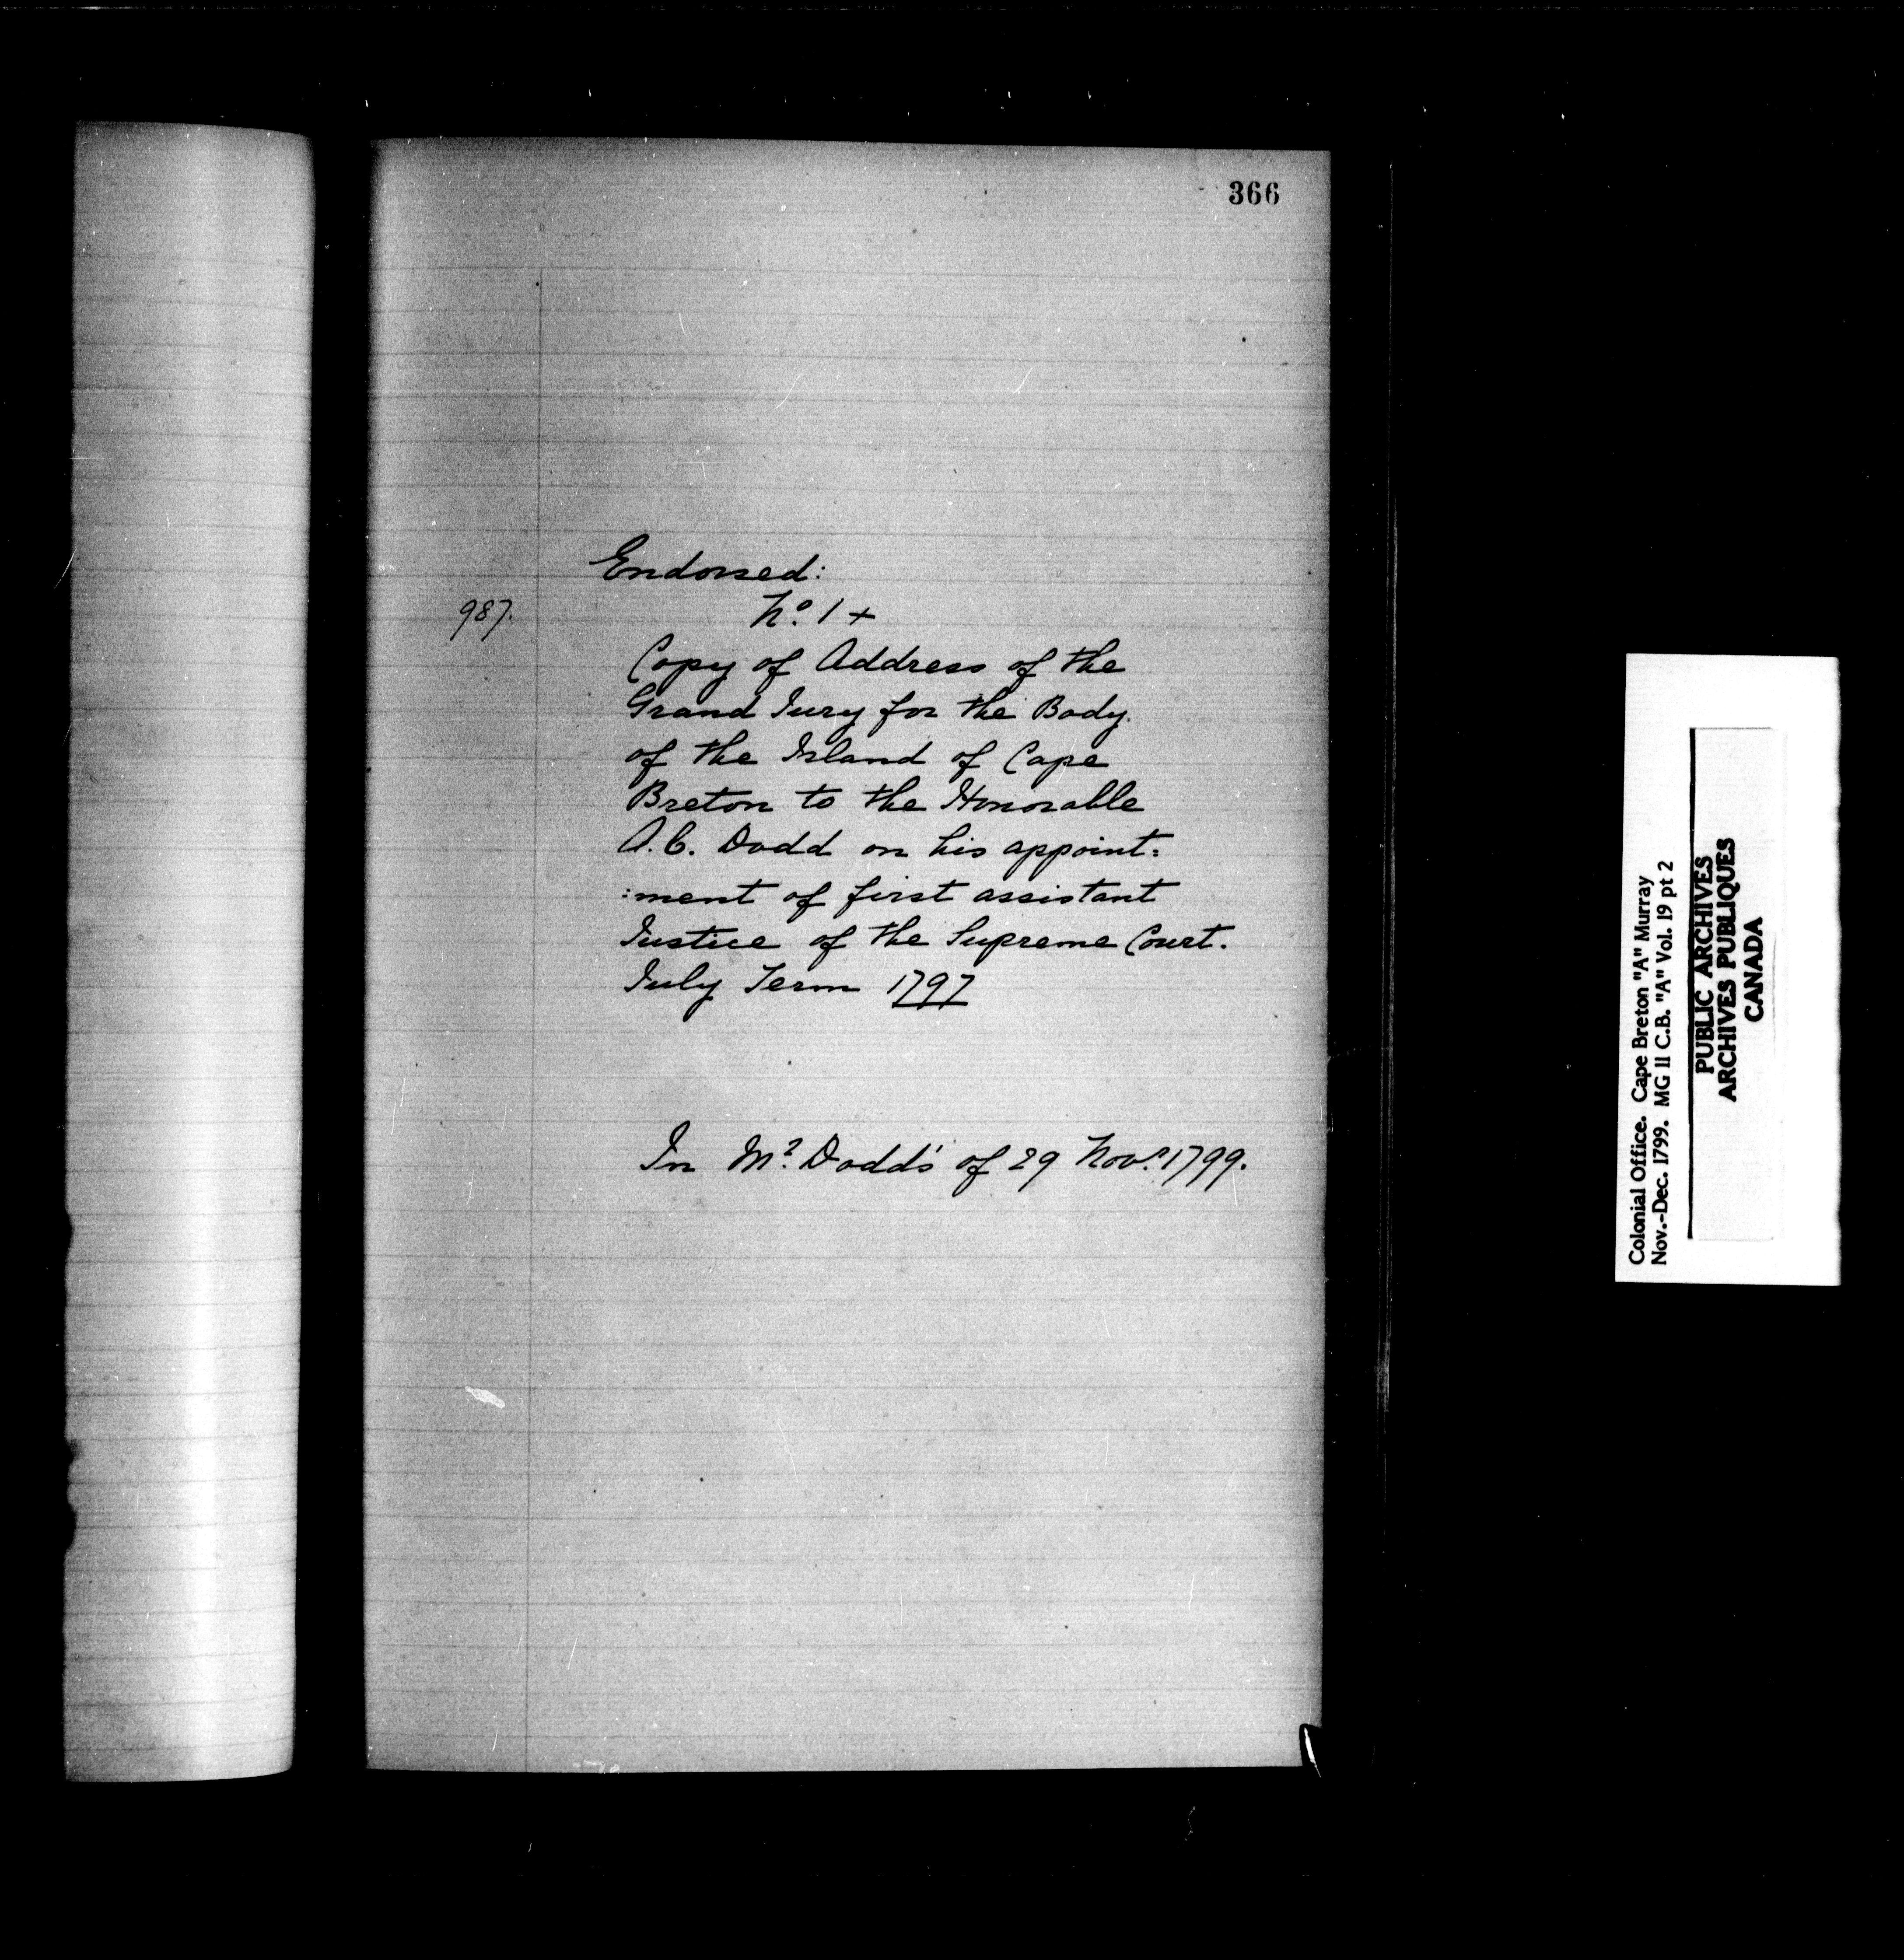 366
Endorsed:
987.
No. 1 +
Copy of Address of the
Grand Jury for the Body
of the Island of Cape
Breton to the Honorable
A. C. Dodd on his appoint:
:ment of first assistant
Justice of the Supreme Court.
July Term 1797
In Mr. Dodd's of 29 Novr. 1799.
Colonial Office. Cape Breton "A" Murray
Nov.-Dec. 1799. MG 11 C.B. "A" Vol. 19 pt 2
PUBLIC ARCHIVES
ARCHIVES PUBLIQUES
CANADA